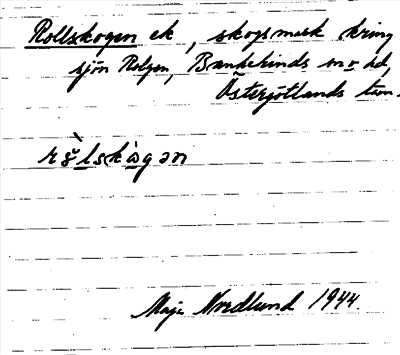 Rollskogen ek, skogsmark kring
sjön Rolgen, Brunskinds sn o. hd,
Östergötlands län.
Maja Nordlund 1944.